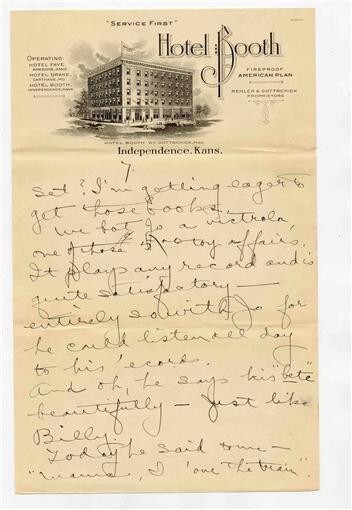 "SERVICE FIRST"
Hotel Booth
OPERATING:
HOTEL FAYE
PARSONS, KANS.
HOTEL DRAKE
CARTHAGE, MO.
HOTEL BOOTH
INDEPENDENCE, KANS.
FIREPROOF
AMERICAN PLAN
REHLER & GOTTSCHICK
PROPRIETORS
HOTEL BOOTH WM GOTTSCHICK, MGR.
Independence, Kans.
7.
set? I'm getting eager to
get those books.
We bot Jo a victrola,
one of those $ toy affairs.
It plays any record and is
quite satisfactory —
entirely so with Jo for
he could listen all day
to his 'ecords.
And oh, he says his "bete"
beautifully — just like
Billy.
Today he said to me —
"mama, I 'ove the train".